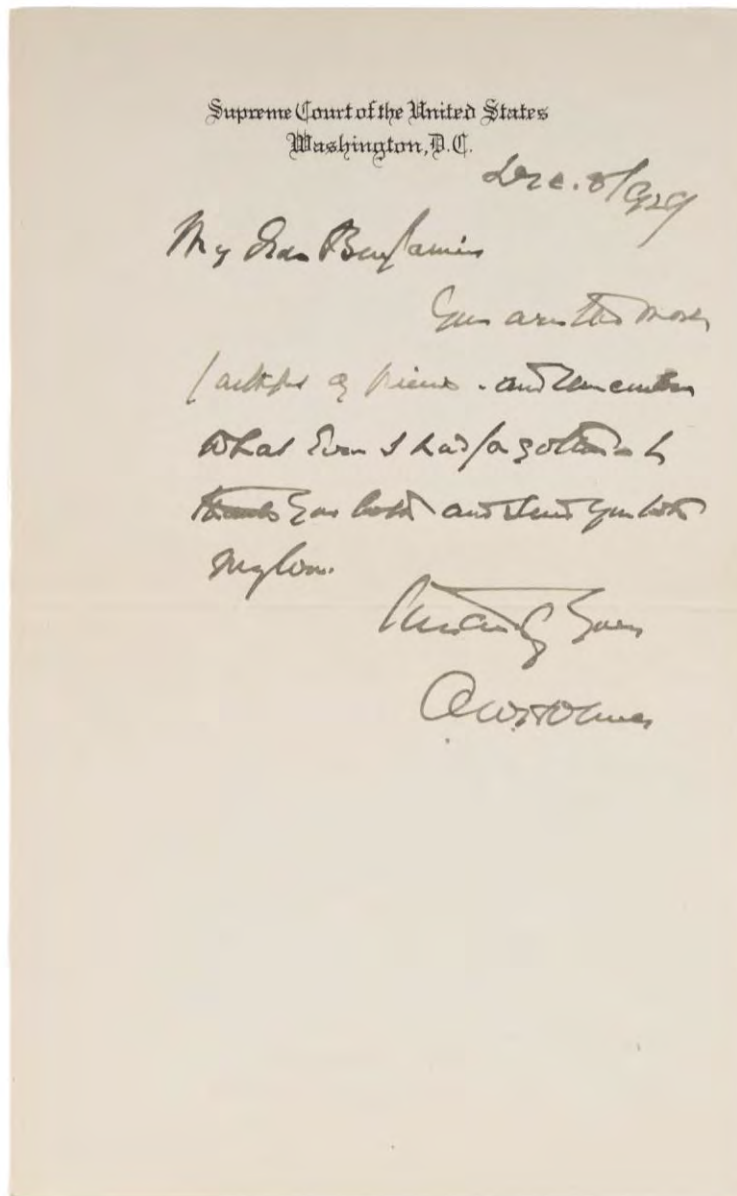 Supreme Court of the United States
Washington, D.C.
Dec. 8/929
My dear Benjamin
You are the most
faithful of friends - and remember
what even I had forgotten. I
thank you both and send you both
my love.
yours
OW Holmes